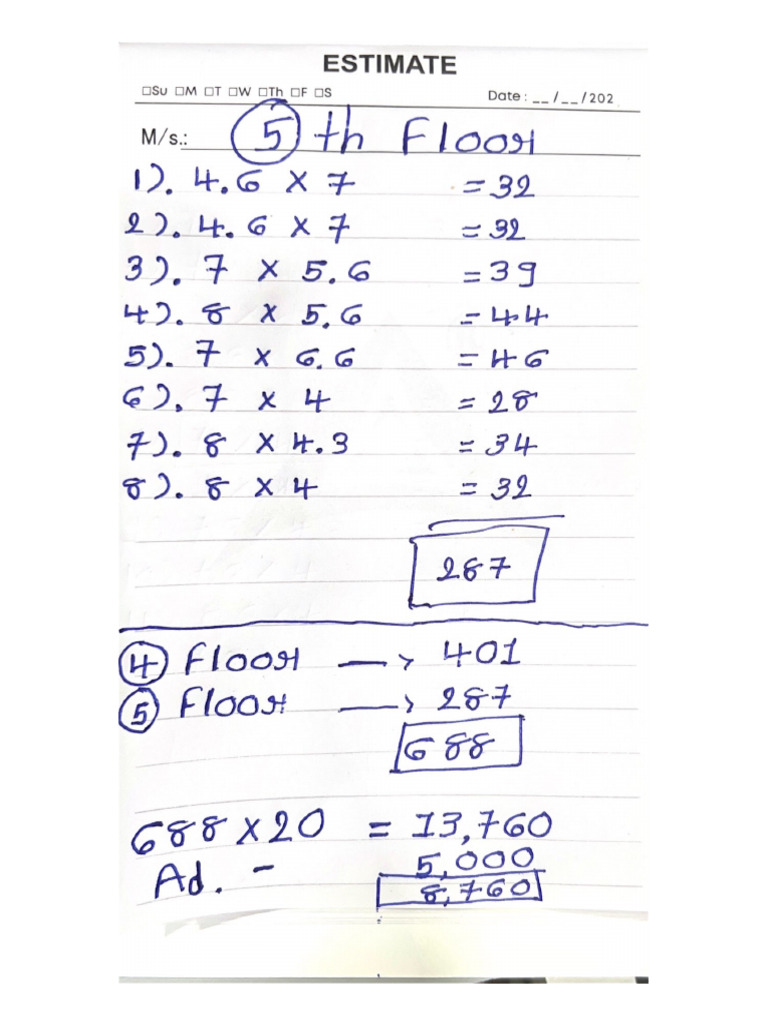 ESTIMATE
□Su □M □T □W □Th □F □S Date : __ /__ /202
M/s.: 5 th Floor
1). 4.6 X 7 = 32
2). 4.6 X 7 = 32
3). 7 X 5.6 = 39
4). 8 X 5.6 = 44
5). 7 X 6.6 = 46
6). 7 X 4 = 28
7). 8 X 4.3 = 34
8). 8 X 4 = 32
287
4 Floor → 401
5 Floor → 287
688
688 X 20 = 13,760
Ad. - 5,000
8,760